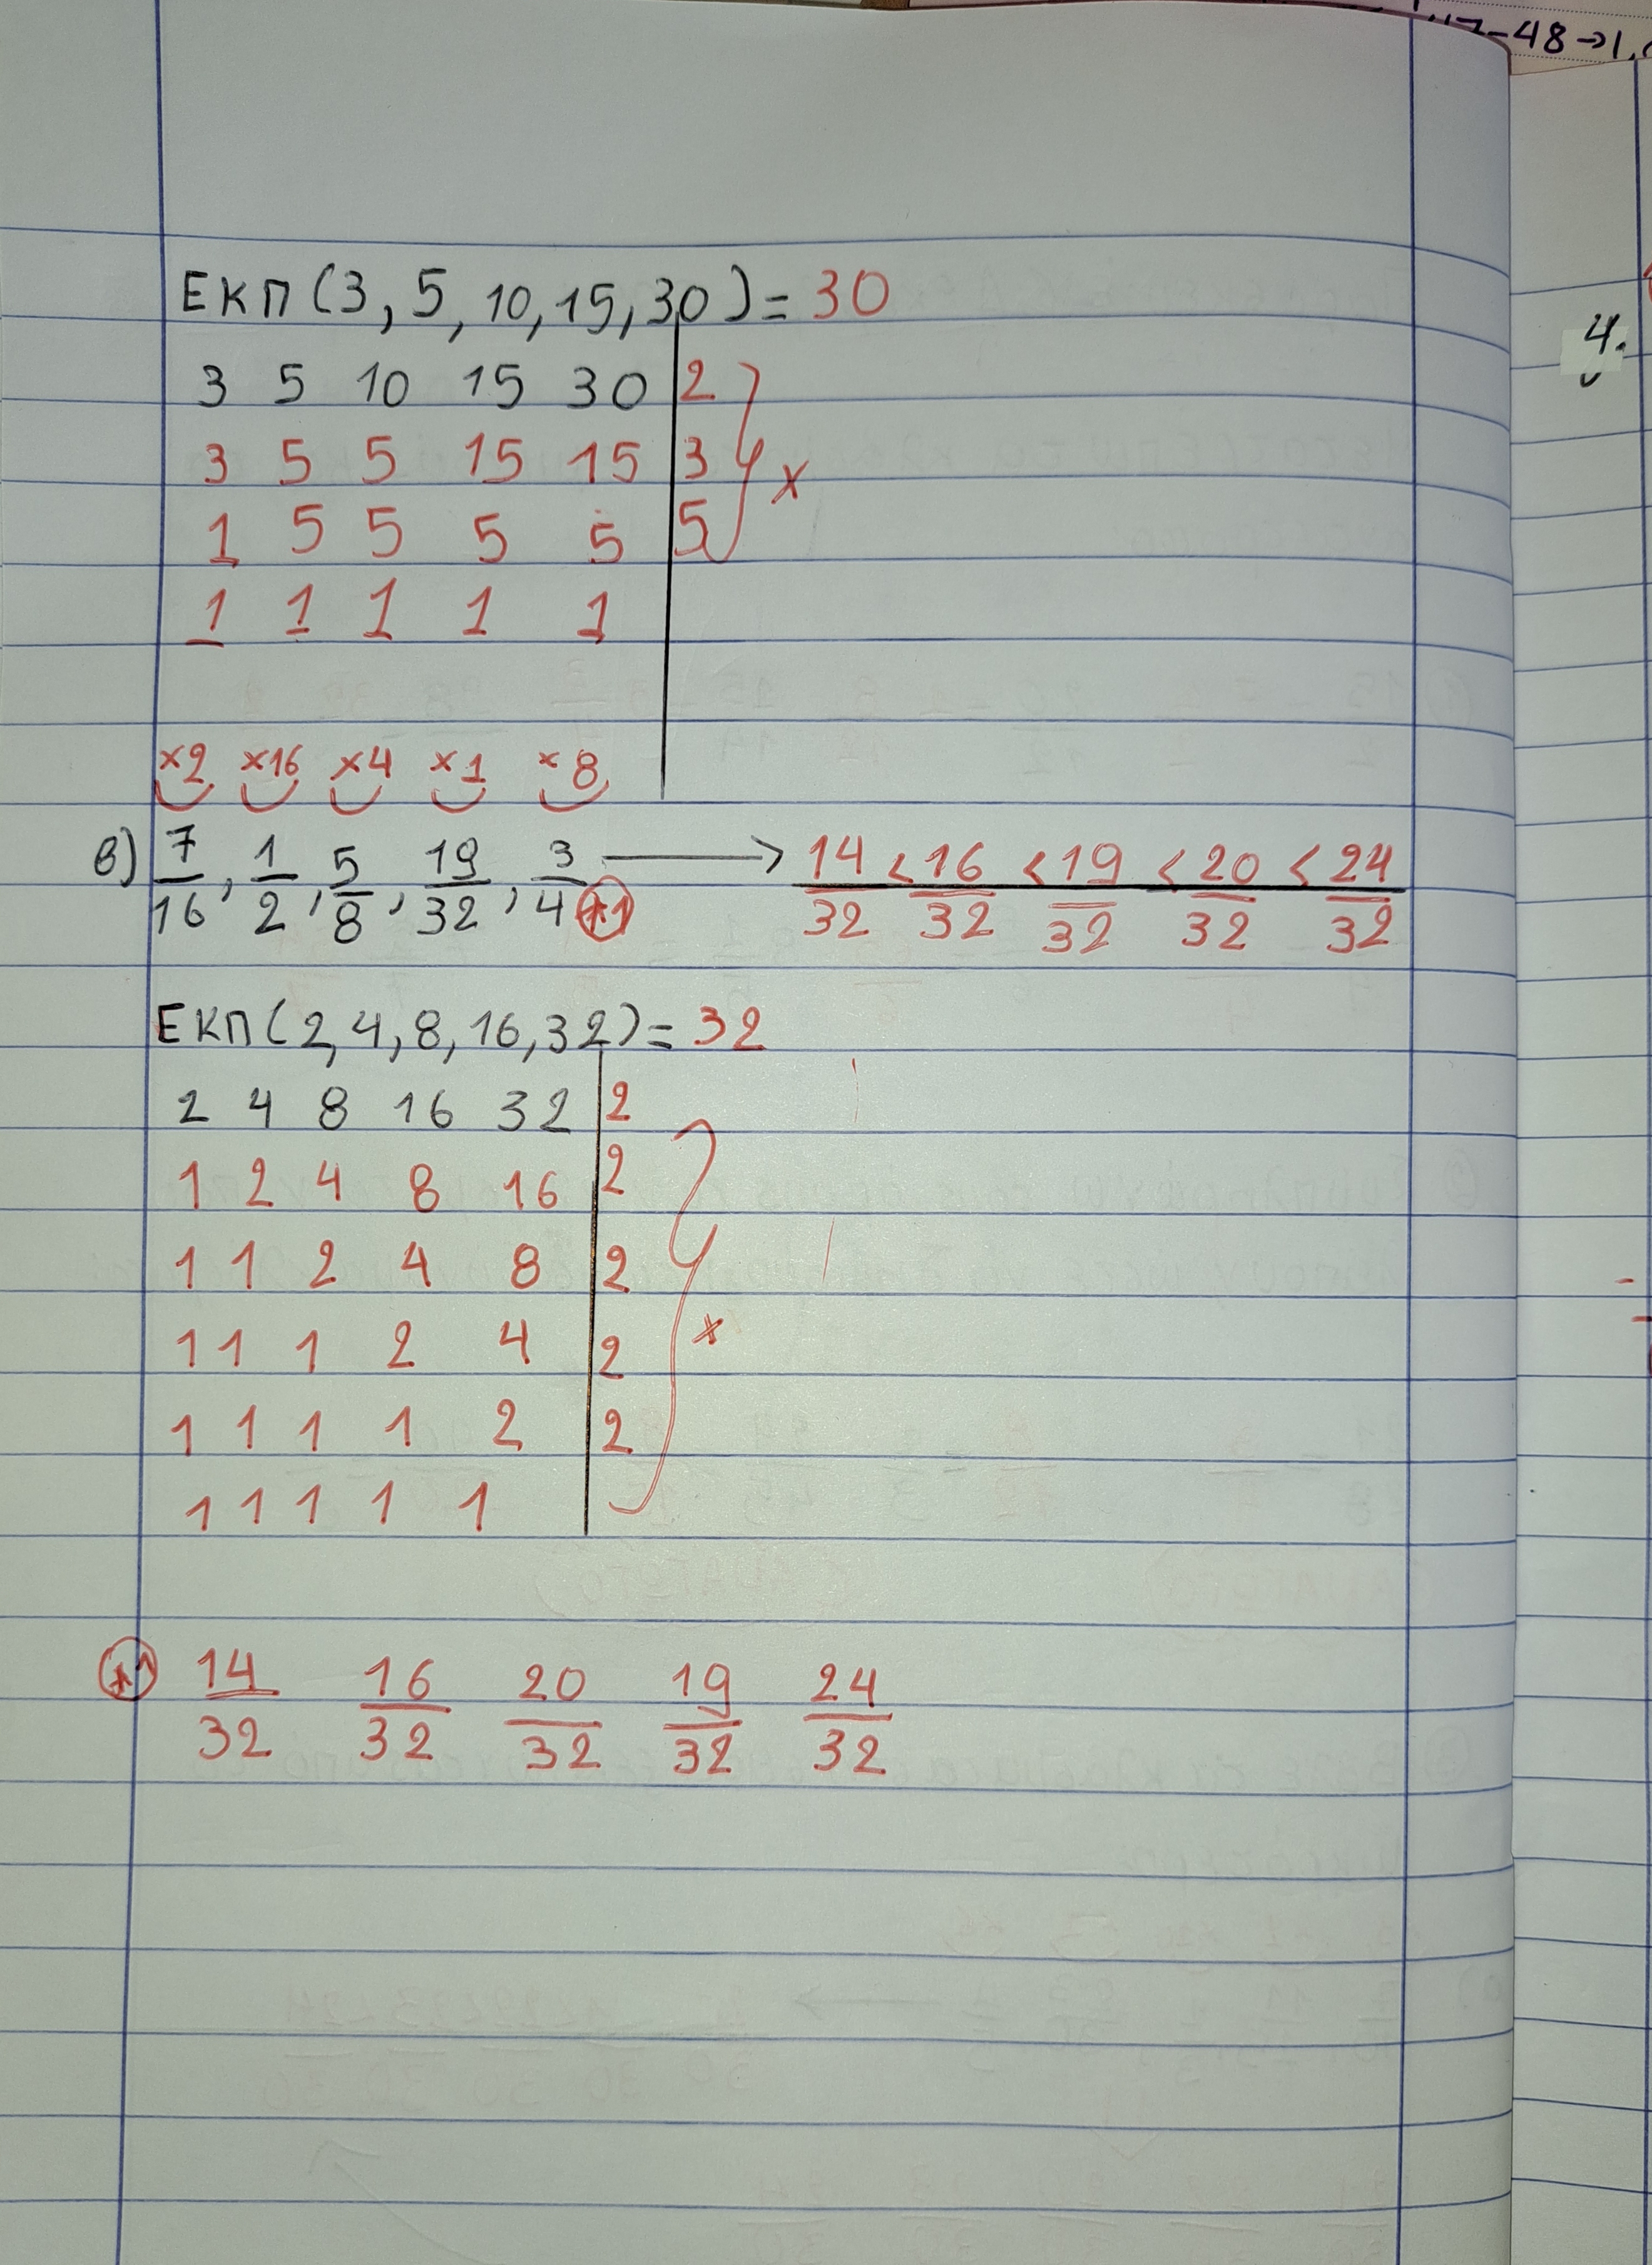 -48→1,
ΕΚΠ(3, 5, 10, 15, 30) = 30
3 5 10 15 30 | 2
3 5 5 15 15 | 3
x
1 5 5 5 5 | 5
1 1 1 1 1
4.
x2 x16 x4 x1 x8
β) 7/16, 1/2, 5/8, 19/32, 3/4 *1 → 14/32 < 16/32 < 19/32 < 20/32 < 24/32
ΕΚΠ(2, 4, 8, 16, 32) = 32
2 4 8 16 32 | 2
1 2 4 8 16 | 2
1 1 2 4 8 | 2
x
1 1 1 2 4 | 2
1 1 1 1 2 | 2
1 1 1 1 1
*1 14/32 16/32 20/32 19/32 24/32